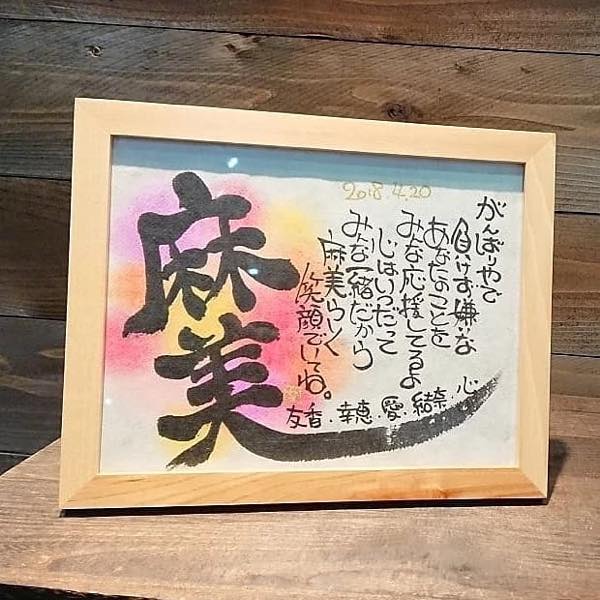 麻美
2018.4.20
がんばりやで
負けず嫌いな
あなたのことを
みな応援してるよ
心はいつだって
みな一緒だから
麻美らしく
笑顔でいてね。
友香.幸恵.愛.結奈.心